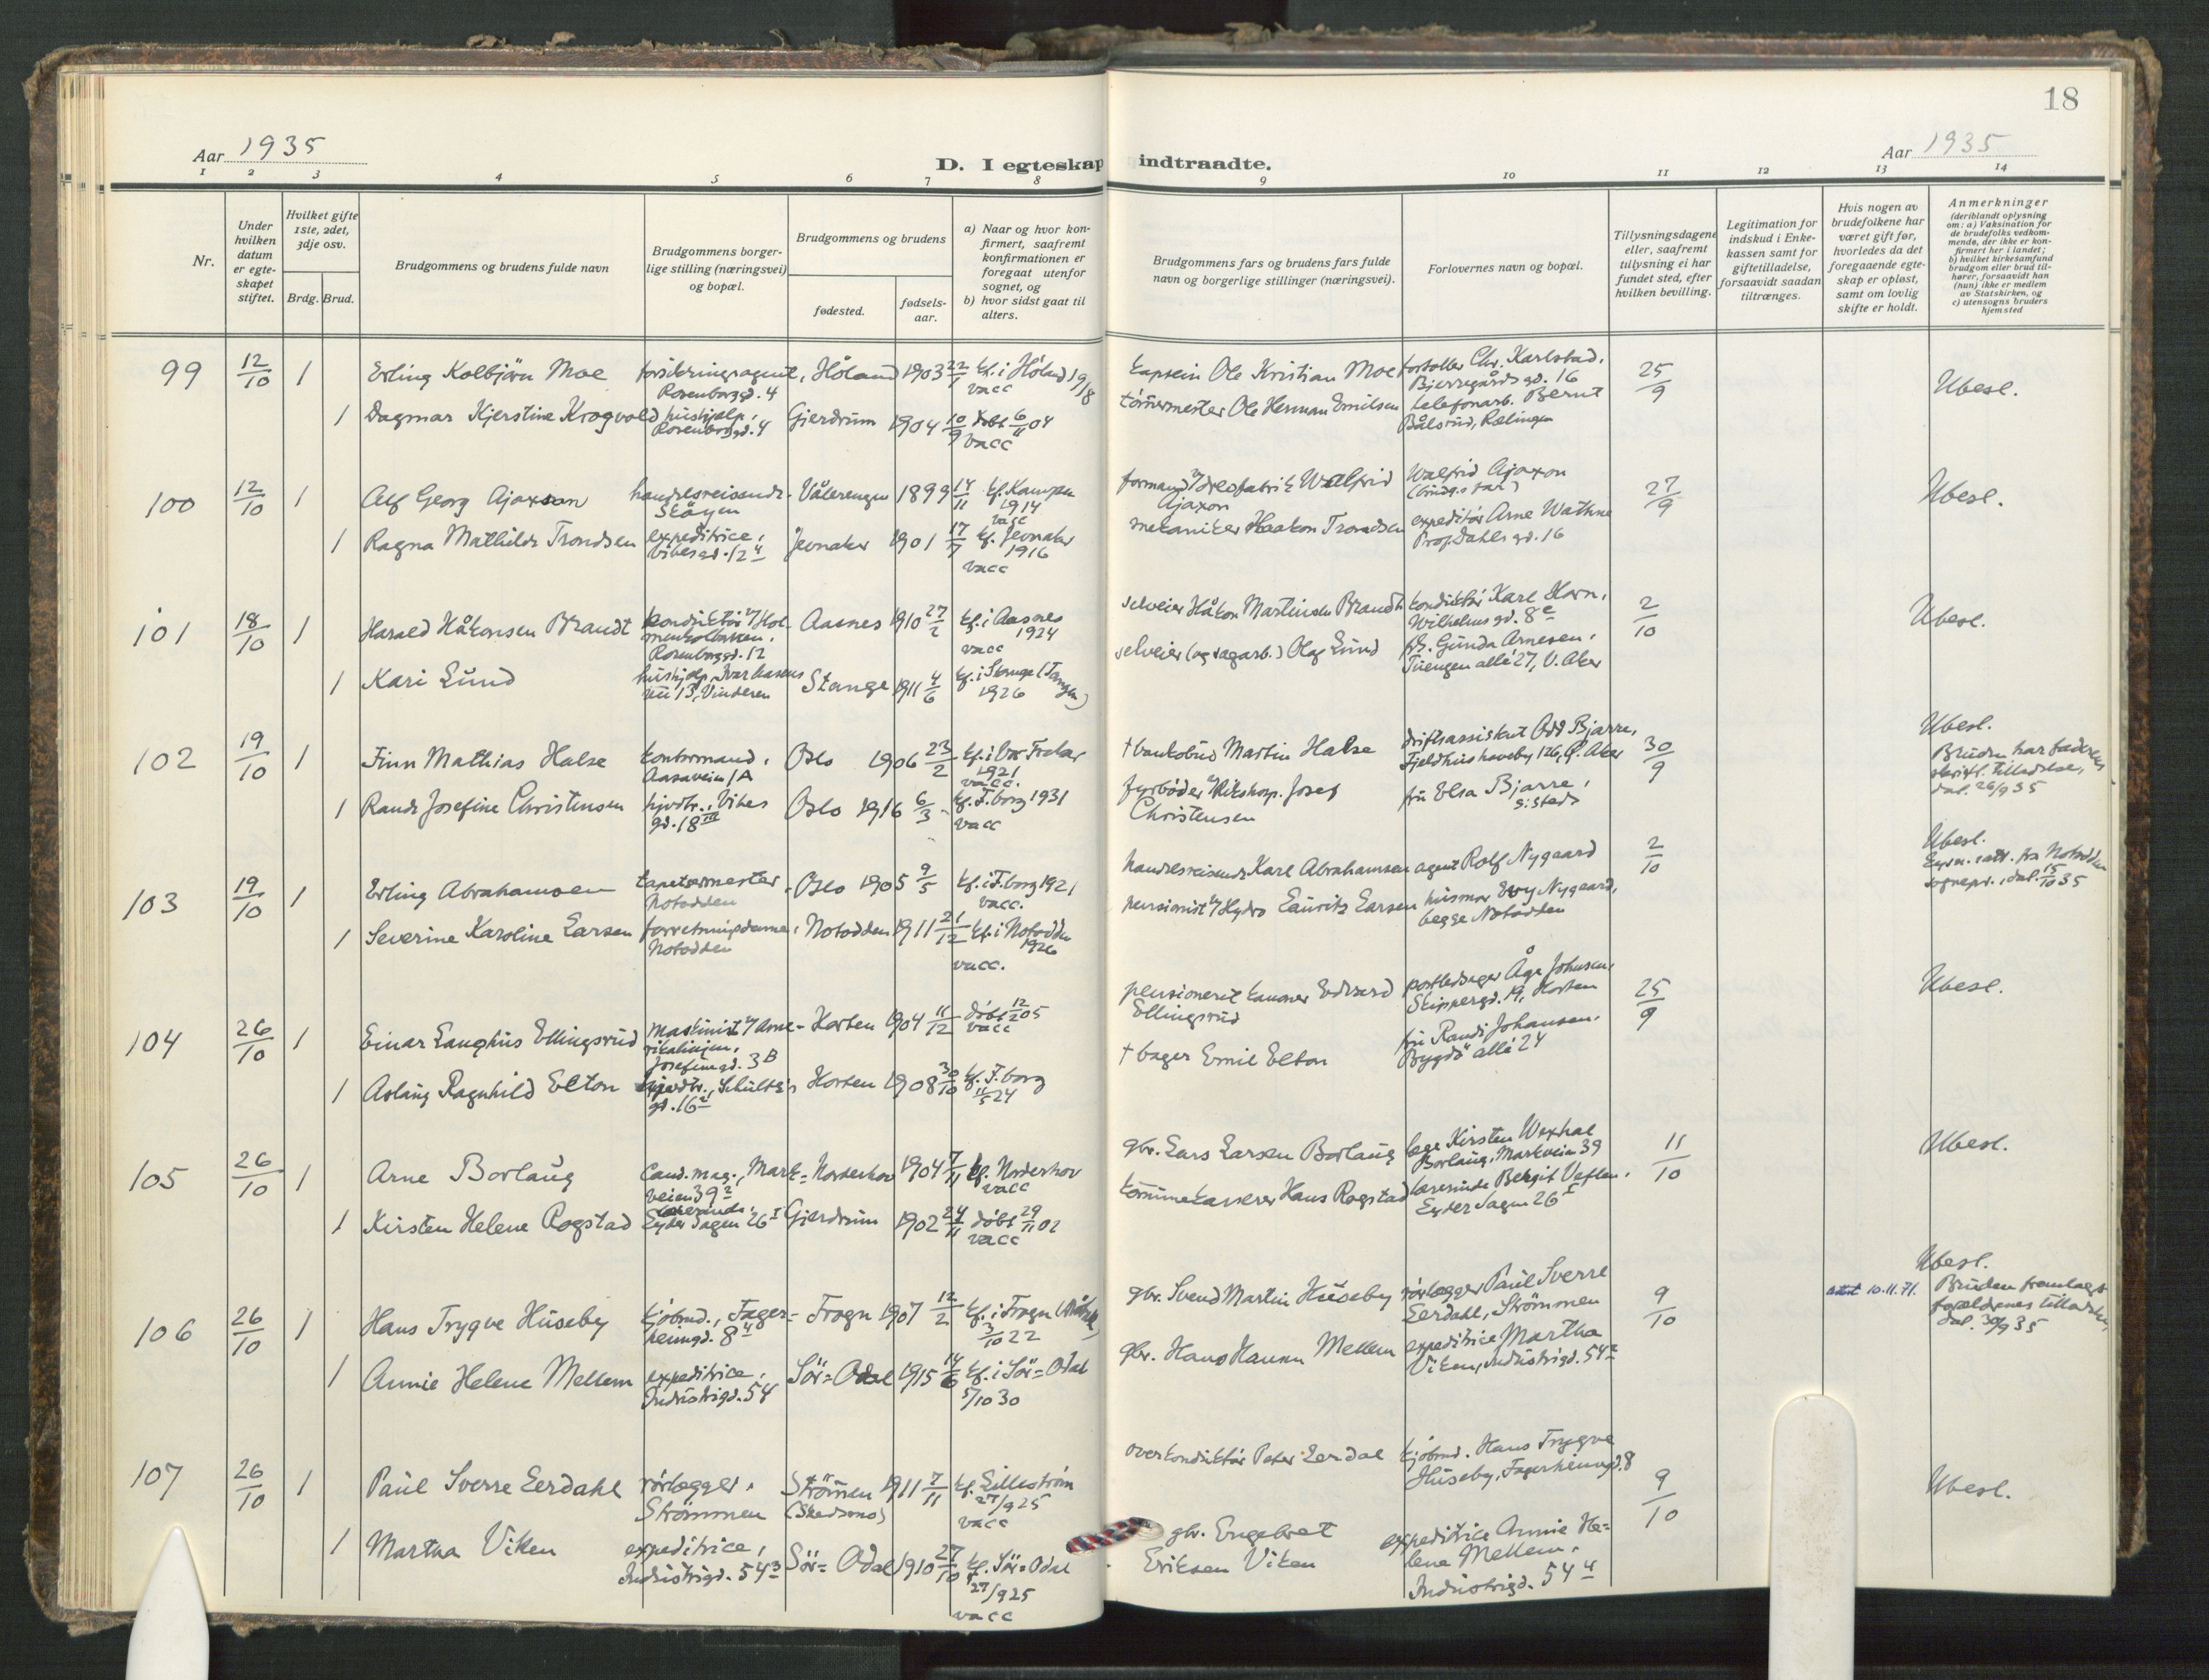 18
Aar 1935
D. I egteskap indtraadte.
Aar 1935
1 2 3 4 5 6 7 8 9 10 11 12 13 14
Nr.
Under hvilken datum er egteskapet stiftet.
Hvilket gifte 1ste, 2det, 3dje osv.
Brdg. Brud.
Brudgommens og brudens fulde navn
Brudgommens borgerlige stilling (næringsvei) og bopæl.
Brudgommens og brudens
fødested.
fødselsaar.
a) Naar og hvor konfirmert, saafremt konfirmationen er foregaat utenfor sognet, og
b) hvor sidst gaat til alters.
Brudgommens fars og brudens fars fulde navn og borgerlige stillinger (næringsvei).
Forlovernes navn og bopæl.
Tillysningsdagene eller, saafremt tillysning ei har fundet sted, efter hvilken bevilling.
Legitimation for indskud i Enkekassen samt for giftetilladelse, forsaavidt saadan tiltrænges.
Hvis nogen av brudefolkene har været gift før, hvorledes da det foregaaende egteskap er opløst, samt om lovlig skifte er holdt.
Anmerkninger
(deriblandt oplysning om: a) Vaksination for de brudefolks vedkommende, der ikke er konfirmert her i landet; b) hvilket kirkesamfund brudgom eller brud tilhører, forsaavidt han (hun) ikke er medlem av Statskirken, og c) utensogns bruders hjemsted
99 12/10 1 Erling Kolbjörn Moe forsikringsagent, Rosenborggd. 4 Höland 1903 22/7 kf. i Höland 19/8 vacc
kaptein Ole Kristian Moe
Chr. Karlstad, Bjerregårdsgd. 16
25/9
Ubesl.
1 Dagmar Kjerstine Krogvold hushjelp, Rosenborggd. 4 Gjerdrum 1904 10/9 döbt 6/11 04 vacc
tömmermester Ole Herman Emilsen
telefonarb. Bernt Bålsrud, Rælingen
100 12/10 1 Alf Georg Ajaxson handelsreisende Sköyen Vålerengen 1899 14/11 kf. Kampen 1914 vacc
formand Walfrid Ajaxon
Walfrid Ajaxon (brudg.s far)
27/9
Ubesl.
1 Ragna Mathilde Trondsen expeditrice, Vibesgd. 12 Jevnaker 1901 17/7 kf. Jevnaker 1916 vacc
mekaniker Haakon Trondsen
expeditör Arne Wathne Prof. Dahls gd. 16
101 18/10 1 Harald Håkonsen Brandt konduktör v/Holmenkolbanen, Rosenborggd. 12 Aasnes 1910 27/2 kf. i Aasnes 1924 vacc
selveier Håkon Martinsen Brandt
konduktör Karl Horn, Wilhelmsgd. 8
2/10
Ubesl.
1 Kari Lund hushjelp, Ivar Aasens vei 13, Vinderen Stange 1911 4/6 kf. i Stange (Tangen) 1926
selveier (og sagarb.) Olaf Lund
Gunda Arnesen, Tuengen allé 27, V. Aker
102 19/10 1 Finn Mathias Halse kontormand, Aasaveien 1A Oslo 1906 23/2 kf. i Frelser 1921 vacc.
† bankbud Martin Halse
driftsassistent Odd Bjarre, Fjeldhus haveby 126, Ö. Aker
30/9
Ubesl.
Bruden har faderens skriftl. tilladelse, dat. 26/9 35
1 Randi Josefine Christensen hjvdtr., Vibes gd. 18 III Oslo 1916 6/3 kf. F.borg 1931 vacc
fyrböder Josef Christensen
fru Elsa Bjarre, sisteds
103 19/10 1 Erling Abrahamsen tapetsermester, Notodden Oslo 1905 9/5 kf. i F.borg 1921 vacc.
handelsreisende Karl Abrahamsen
agent Rolf Nygaard
2/10
Ubesl.
attr. fra Notodden sognepr., dat. 15/10 35
1 Severine Karoline Larsen forretningsdame, Notodden Notodden 1911 21/12 kf. i Notodden 1926 vacc.
pensionist v/Hydro Lauritz Larsen
husmor Evy Nygaard, begge Notodden
104 26/10 1 Einar Langhus Ellingsrud maskinist v/Amerikalinjen, Josefinegd. 3 B Horten 1904 11/12 döbt 12/2 05 vacc
pensionert kanoner Edvard Ellingsrud
postbedager Åge Johnsen, Skippergd. 19, Horten
25/9
Ubesl.
1 Aslaug Ragnhild Elton hjvdtr., Schultz's gd. 16 Horten 1908 30/10 kf. F.borg 11/5 24
† bager Emil Elton
fru Randi Johansen, Bygdö allé 24
105 26/10 1 Arne Borlaug Cand. mag., Markveien 39 Norderhov 1904 7/11 kf. Norderhov vacc
gbr. Lars Larsen Borlaug
Kirsten Wexhal Borlaug, Markveien 39
11/10
Ubesl.
1 Kirsten Helene Rogstad lærerinde, Eyder Sagen 26 I Gjerdrum 1902 24/11 döbt 29/11 02 vacc
kommunekasserer Hans Rogstad
lærerinde Bergit Veflen, Eyder Sagen 26 I
106 26/10 1 Hans Trygve Huseby kjöbmd., Fagerheimgd. 8 Frogn 1907 12/2 kf. i Frogn 3/10 22
gbr. Svend Martin Huseby
rörlegger Paul Sverre Lerdahl, Strömmen
9/10
10.11.71.
Ubesl.
Bruden fremlagt forældrenes tilladelse, dat. 30/9 35
1 Annie Helene Mellem expeditrice, Industrigd. 54 Sör-Odal 1915 14/6 kf. i Sör-Odal 5/10 30
gbr. Hans Hansen Mellem
expeditrice Martha Viken, Industrigd. 54
107 26/10 1 Paul Sverre Lerdahl rörlegger, Strömmen Strömmen (Skedsmo) 1911 7/11 kf. Lillestrøm 27/9 25 vacc
overkonduktör Peter Lerdal
kjöbmd. Hans Trygve Huseby, Fagerheimgd. 8
9/10
Ubesl.
1 Martha Viken expeditrice, Industrigd. 54 Sör-Odal 1910 27/10 kf. Sör-Odal 27/9 25 vacc
gbr. Engebret Eriksen Viken
expeditrice Annie Helene Mellem, Industrigd. 54